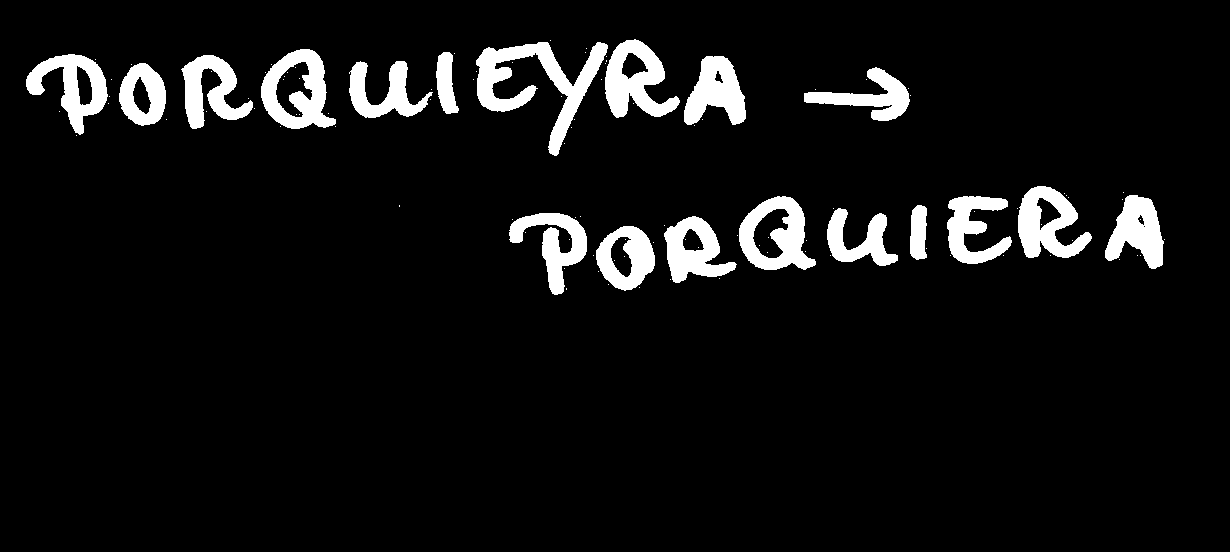 PORQUIEYRA →
PORQUIERA